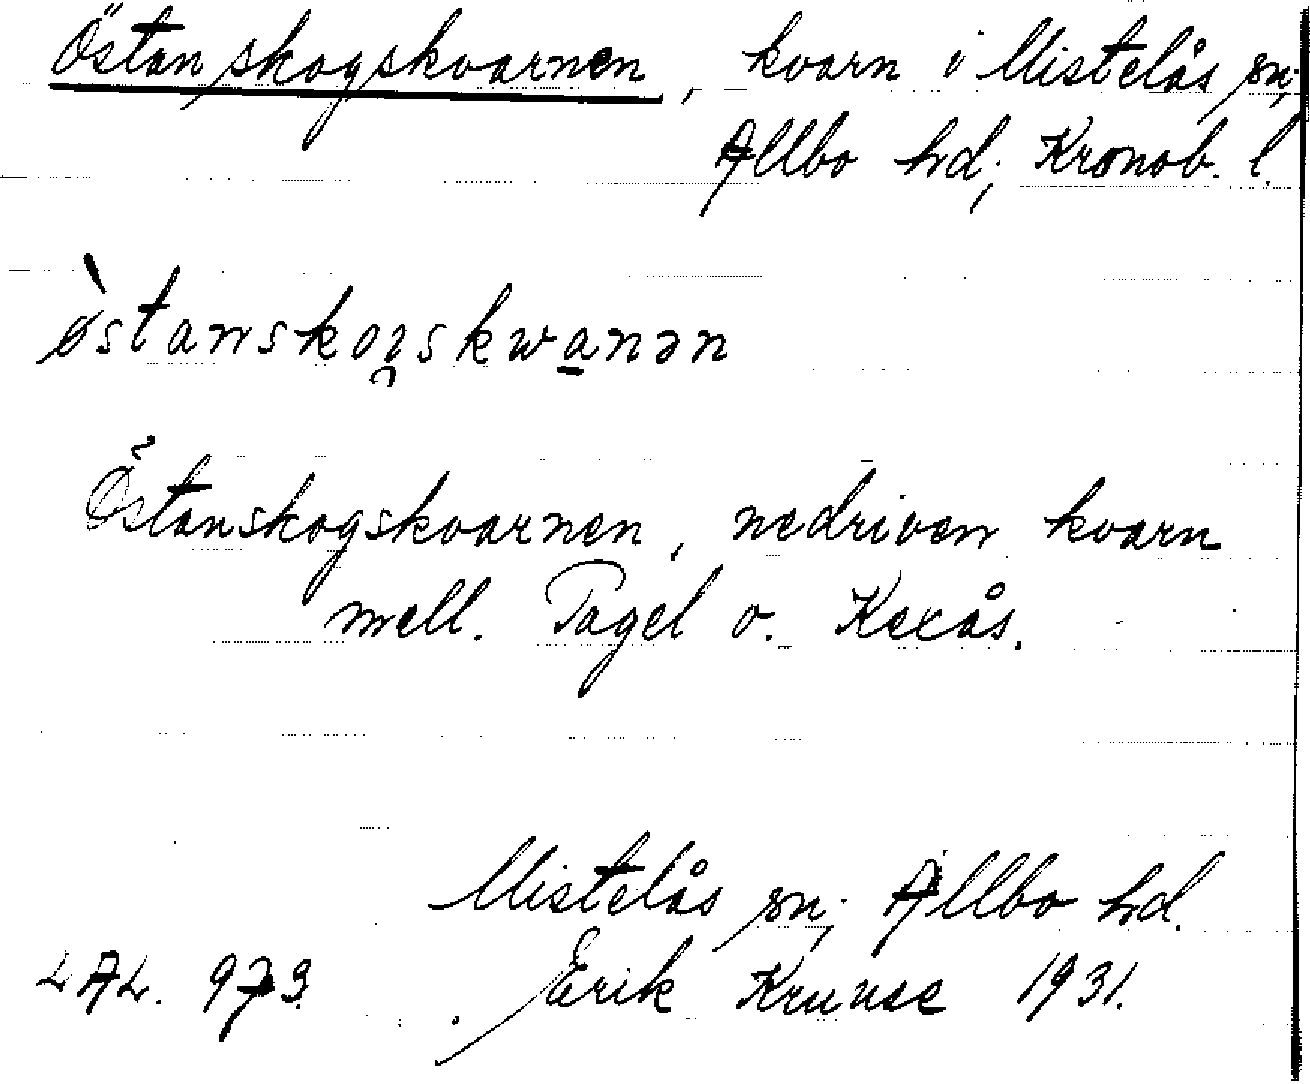 Östanskogskvarnen, kvarn i Mistelås sn;
Allbo hd; Kronob. l.
östanskogskwanən
Östanskogskvarnen, nedriven kvarn
mell. Tagel o. Kexås.
Mistelås sn; Allbo hd.
LAL. 973. Erik Kruuse 1931.